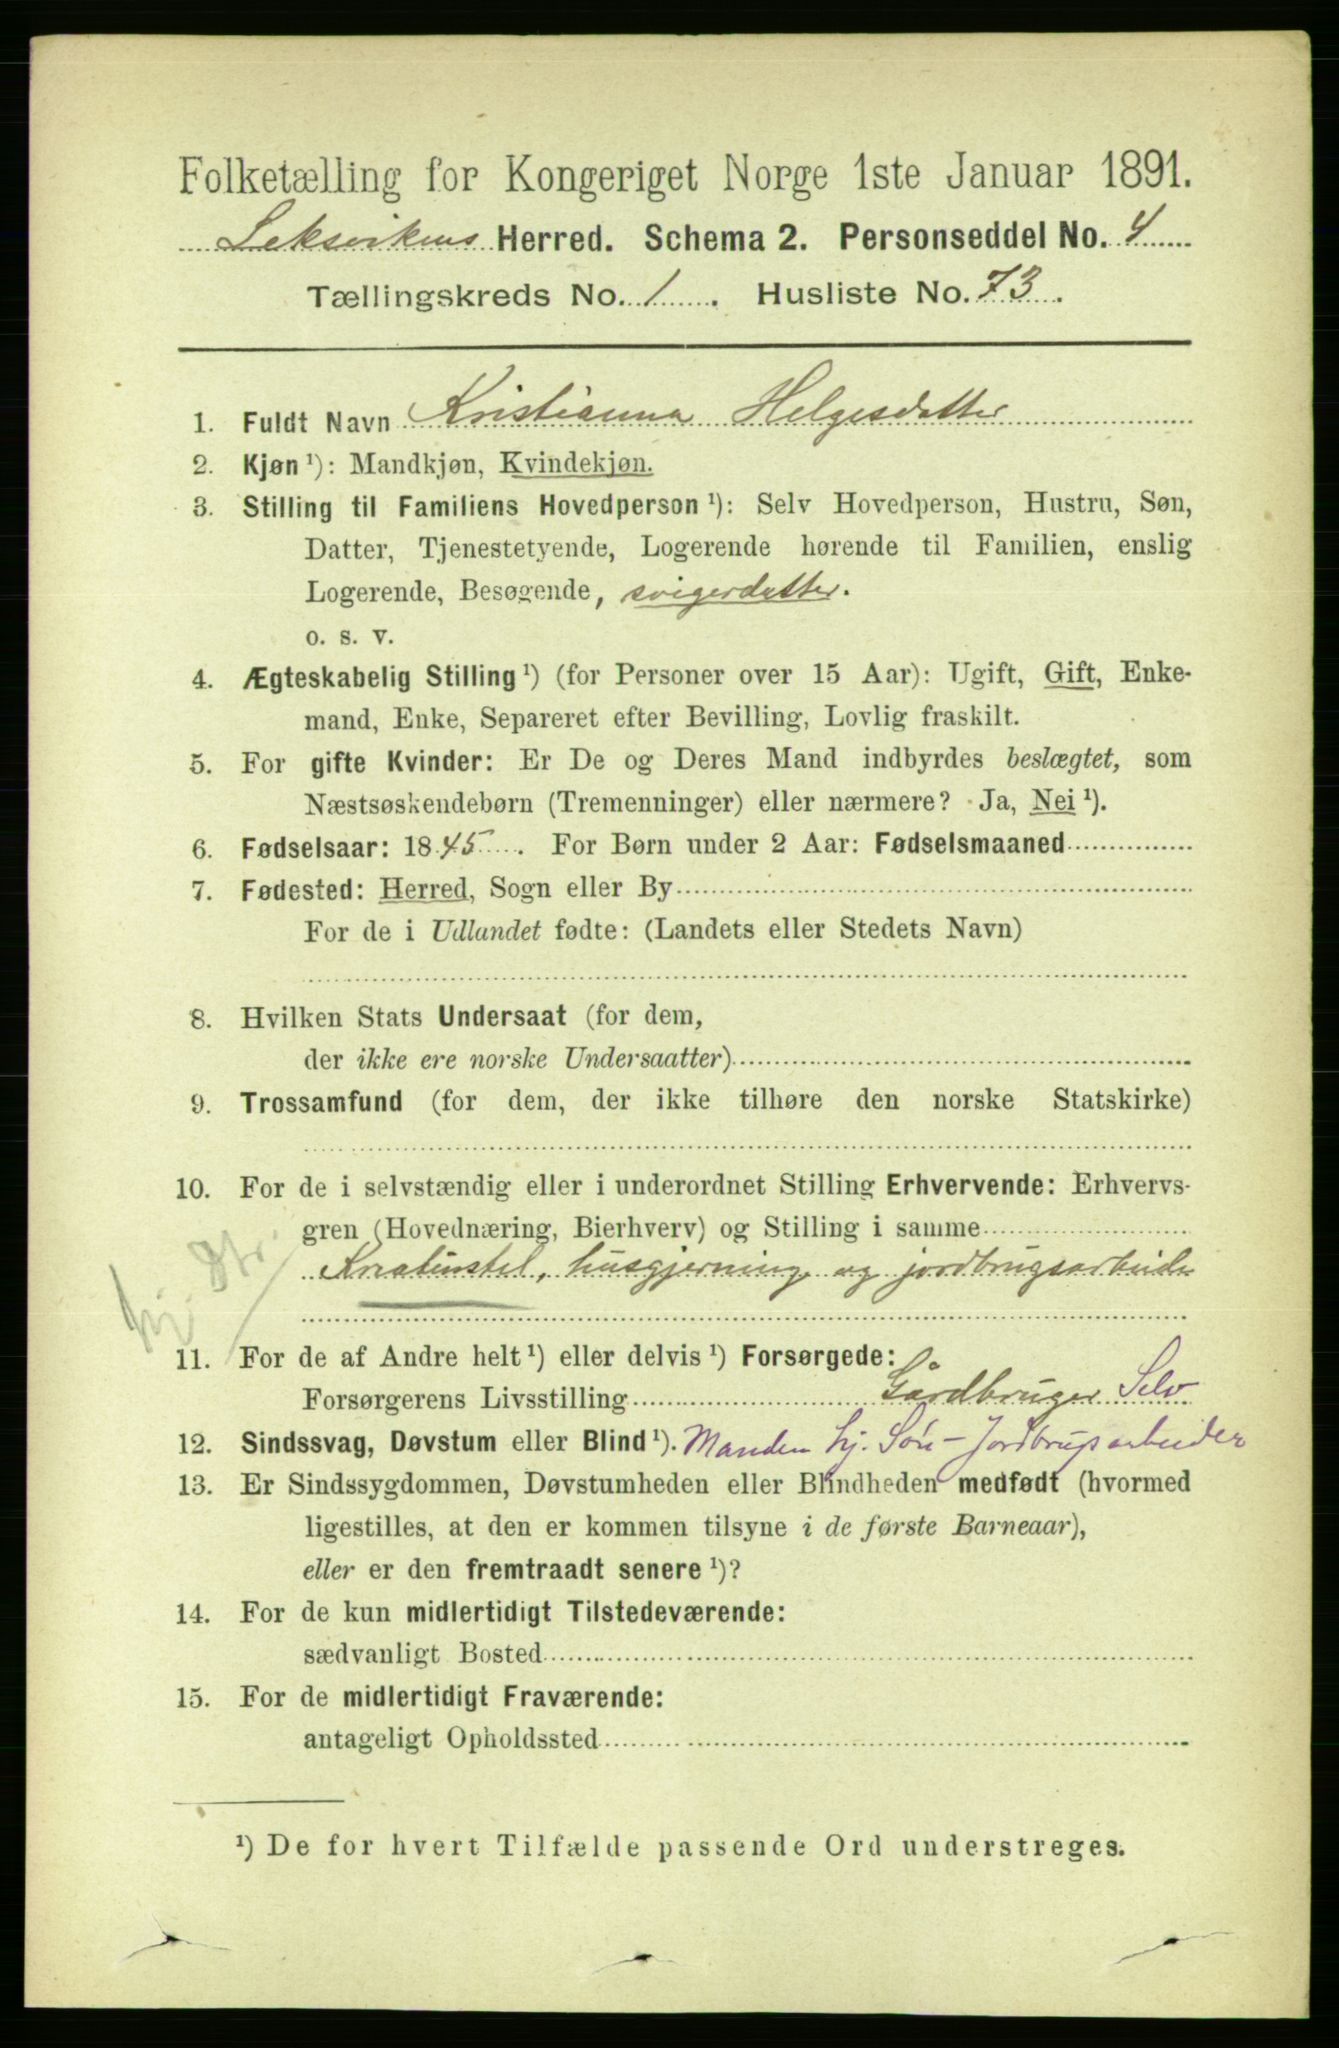 Folketælling for Kongeriget Norge 1ste Januar 1891.
Leksvikens Herred. Schema 2. Personseddel No. 4
Tællingskreds No. 1. Husliste No. 73.
1. Fuldt Navn Kristianna Helgesdatter
2. Kjøn ¹): Mandkjøn, Kvindekjøn.
3. Stilling til Familiens Hovedperson ¹): Selv Hovedperson, Hustru, Søn,
Datter, Tjenestetyende, Logerende hørende til Familien, enslig
Logerende, Besøgende, svigerdatter.
o. s. v.
4. Ægteskabelig Stilling ¹) (for Personer over 15 Aar): Ugift, Gift, Enke-
mand, Enke, Separeret efter Bevilling, Lovlig fraskilt.
5. For gifte Kvinder: Er De og Deres Mand indbyrdes beslægtet, som
Næstsøskendebørn (Tremenninger) eller nærmere? Ja, Nei ¹).
6. Fødselsaar: 1845. For Børn under 2 Aar: Fødselsmaaned
7. Fødested: Herred, Sogn eller By
For de i Udlandet fødte: (Landets eller Stedets Navn)
8. Hvilken Stats Undersaat (for dem,
der ikke ere norske Undersaatter)
9. Trossamfund (for dem, der ikke tilhøre den norske Statskirke)
10. For de i selvstændig eller i underordnet Stilling Erhvervende: Erhvervs-
gren (Hovednæring, Bierhverv) og Stilling i samme
Kreaturstel, husgjerning og jordbrugsarbeide
hj. Dtr.
11. For de af Andre helt ¹) eller delvis ¹) Forsørgede:
Forsørgerens Livsstilling Gårdbruger Selv
12. Sindssvag, Døvstum eller Blind ¹). Manden hj. Søn - Jordbrugsarbeider
13. Er Sindssygdommen, Døvstumheden eller Blindheden medfødt (hvormed
ligestilles, at den er kommen tilsyne i de første Barneaar),
eller er den fremtraadt senere ¹)?
14. For de kun midlertidigt Tilstedeværende:
sædvanligt Bosted
15. For de midlertidigt Fraværende:
antageligt Opholdssted
¹) De for hvert Tilfælde passende Ord understreges.